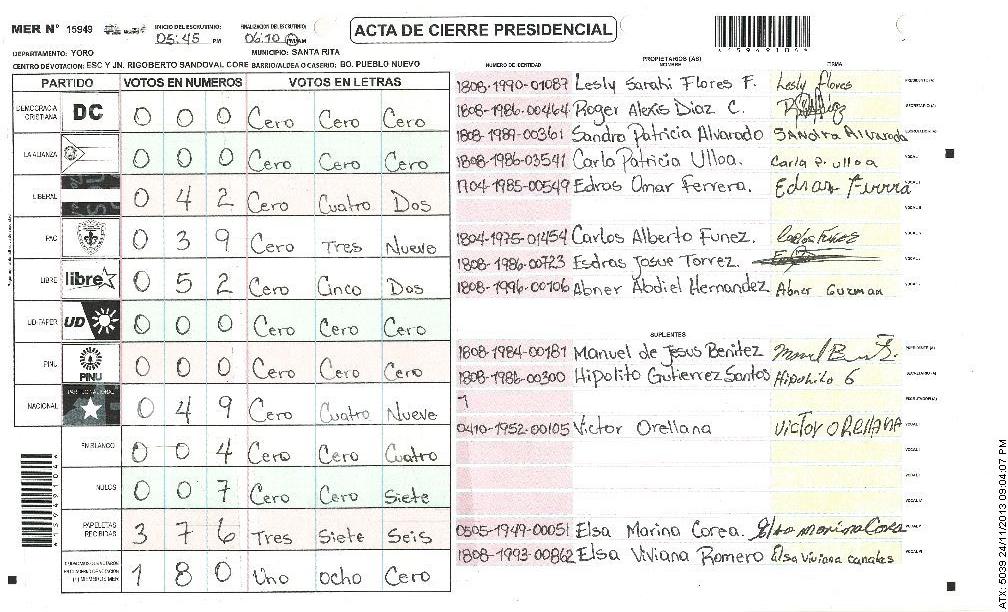 MER Nº 15949
INICIO DEL ESCRUTINIO: 05:45 PM
FINALIZACION DEL ESCRUTINIO: 06:10
ACTA DE CIERRE PRESIDENCIAL
DEPARTAMENTO: YORO
MUNICIPIO: SANTA RITA
CENTRO DE VOTACION: ESC Y JN. RIGOBERTO SANDOVAL CORE BARRIO/ALDEA O CASERIO: BO. PUEBLO NUEVO
PARTIDO VOTOS EN NUMEROS VOTOS EN LETRAS
DEMOCRACIA CRISTIANA DC 0 0 0 Cero Cero Cero
LA ALIANZA 0 0 0 Cero Cero Cero
LIBERAL 0 4 2 Cero Cuatro Dos
PAC 0 3 9 Cero Tres Nueve
LIBRE libre 0 5 2 Cero Cinco Dos
UD-FAPER UD 0 0 0 Cero Cero Cero
PINU PINU 0 0 0 Cero Cero Cero
NACIONAL 0 4 9 Cero Cuatro Nueve
EN BLANCO 0 0 4 Cero Cero Cuatro
NULOS 0 0 7 Cero Cero Siete
PAPELETAS RECIBIDAS 3 7 6 Tres Siete Seis
1 8 0 Uno Ocho Cero
PROPIETARIOS (AS)
NUMERO DE IDENTIDAD NOMBRE FIRMA
1808-1990-01087 Lesly Sarahi Flores F. Lesly flores
1808-1986-00464 Roger Alexis Diaz C.
1808-1989-00361 Sandra Patricia Alvarado SANdra Alvarado
1808-1986-03541 Carla Patricia Ulloa. Carla P. ulloa
1704-1985-00549 Edras Omar Ferrera.
1804-1975-01454 Carlos Alberto Funez. Carlos Funez
1808-1986-00723 Esdras Josue Torrez.
1808-1996-00106 Abner Abdiel Hernandez Abner Guzman
SUPLENTES
1808-1984-00181 Manuel de Jesus Benitez
1808-1986-00300 Hipolito Gutierrez Santos Hipolito G
0410-1952-00105 Victor Orellana VICTOR ORELLANA
0505-1949-00051 Elsa Marina Corea. Elsa marina Corea
1808-1993-00862 Elsa Viviana Romero Elsa Viviana canales
ATX: 5039 24/11/2013 09:04:07 PM